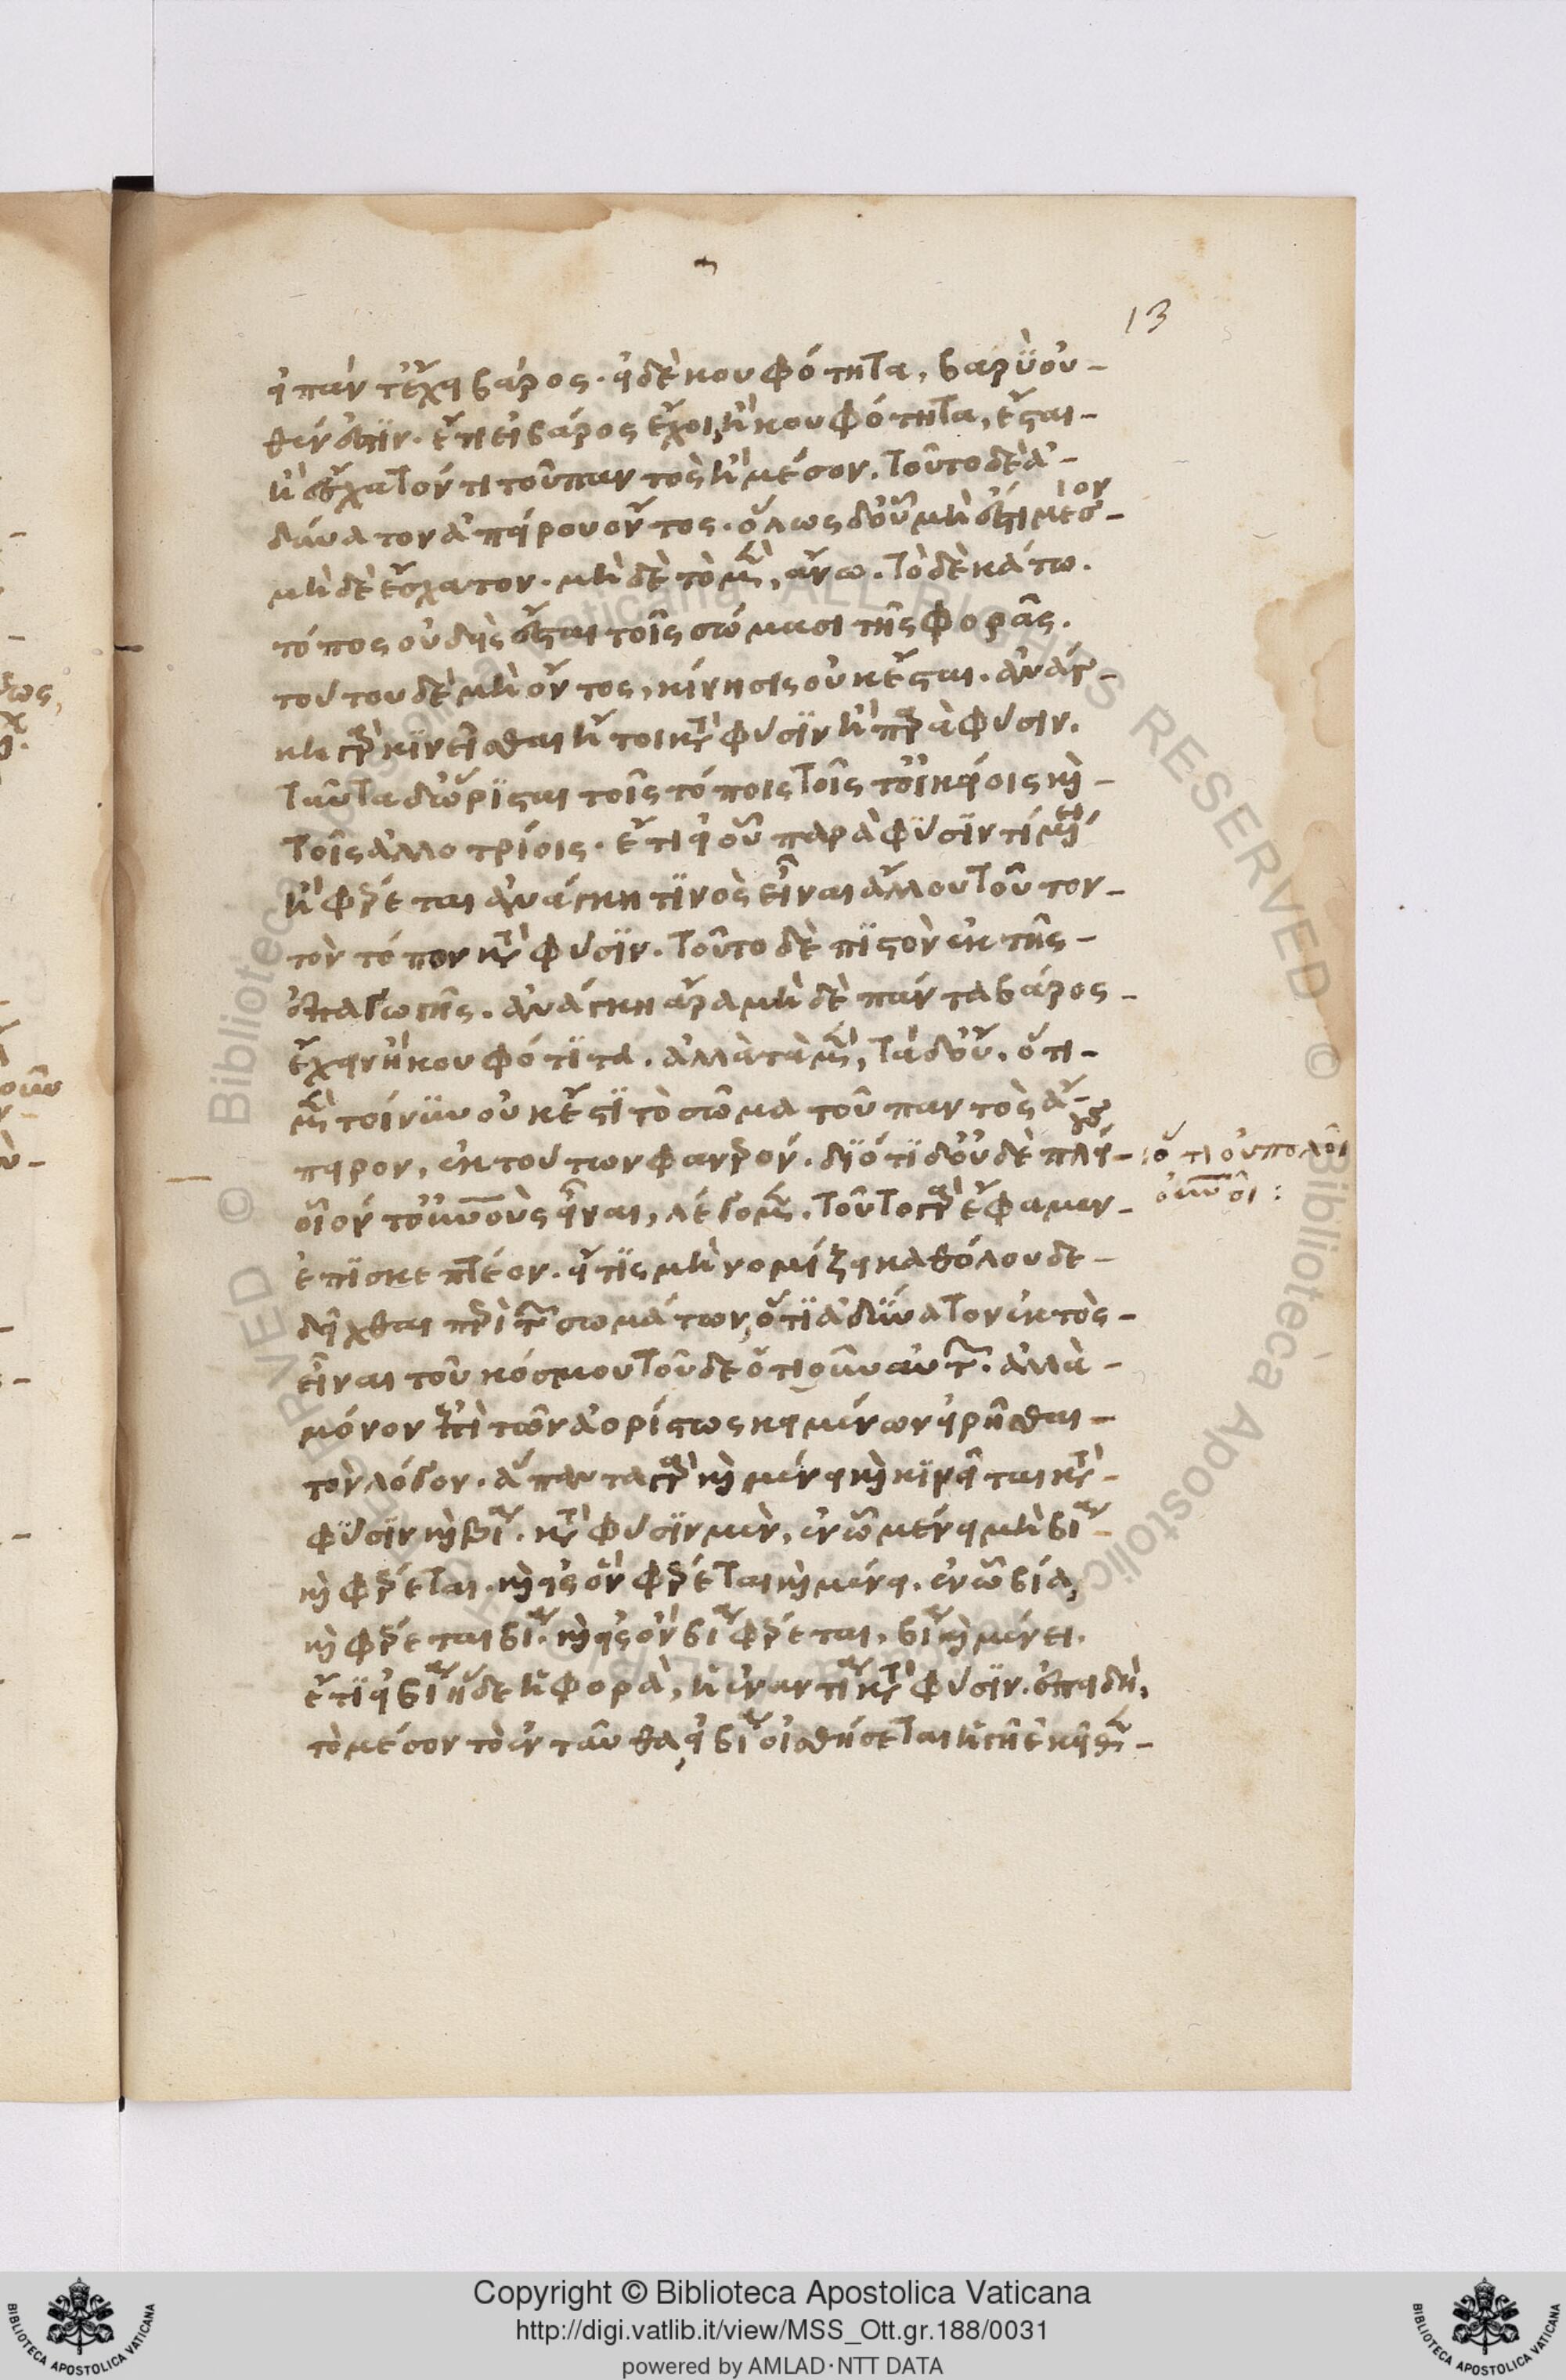 13
εἰ πᾶν τ' ἔχει βάρος. εἰ δὲ κουφότητα, βαρὺ οὐ-
θέν ἐστιν. ἔτι εἰ βάρος ἔχοι ἢ κουφότητα, ἔσται-
ἢ ἔσχατόν τι τοῦ παντὸς ἢ μέσον. τοῦτο δὲ ἀ-
δύνατον ἀπείρου ὄντος. ὅλως δ' οὗ μή ἐστι μέσον-
μὴ δὲ ἔσχατον. μὴ δὲ τὸ μὲν, ἄνω. τὸ δὲ κάτω.
τόπος οὐδεὶς ἔσται τοῖς σώμασι τῆς φορᾶς.
τούτου δὲ μὴ ὄντος, κίνησις οὐκ ἔσται. ἀνάγ-
κη γὰρ κινεῖσθαι ἤτοι κατὰ φύσιν ἢ παρὰ φύσιν.
ταῦτα δ' ὥρισται τοῖς τόποις τοῖς τ' οἰκείοις καὶ-
τοῖς ἀλλοτρίοις. ἔτι εἰ οὗ παρὰ φύσιν τὶ μένει
ἢ φέρεται ἀνάγκη τινὸς εἶναι ἄλλου τοῦτον-
τὸν τόπον κατὰ φύσιν. τοῦτο δὲ πιστὸν ἐκ τῆς-
ἐπαγωγῆς. ἀνάγκη ἄρα μὴ δὲ πάντα βάρος-
ἔχειν ἢ κουφότιτα. ἀλλὰ τὰ μὲν, τὰ δ' οὔ. ὅτι-
μὲν τοίνυν οὐκ ἔστι τὸ σῶμα τοῦ παντὸς ἄ-
πειρον, ἐκ τούτων φανερόν. διότι δ' οὐδὲ πλείους-
οἷόν τ' οὐνοὺς εἶναι, λέγομεν. τοῦτο γὰρ ἔφαμεν-
ἐπισκεπτέον. εἴ τις μὴ νομίζει καθόλου δε-
δεῖχθαι περὶ τῶν σωμάτων, ὅτι ἀδύνατον ἐκτὸς-
εἶναι τοῦ κόσμου τοῦδε ὁτιοῦν αὐτῶν. ἀλλὰ-
μόνον ἐπὶ τῶν ἀορίστως κειμένων εἰρῆσθαι-
τὸν λόγον. ἅπαντα γὰρ καὶ μένει καὶ κινεῖται κατὰ-
φύσιν καὶ βίᾳ. κατὰ φύσιν μὲν, ἐν ᾧ μένει μὴ βίᾳ-
καὶ φέρεται. καὶ εἰς ὃν φέρεται καὶ μένει. ἐν ᾧ βίᾳ,
καὶ φέρεται βίᾳ. καὶ εἰς ὃν βίᾳ φέρεται, βίᾳ καὶ μένει.
ἔτι εἰ βίᾳ ἥδε ἡ φορὰ, ἡ ἐναντία κατὰ φύσιν. ἐπειδὴ,
τὸ μέσον τὸ ἐνταῦθα, εἰ βίᾳ οἰσθήσεται ἡ γῆ ἐκεῖθεν-
ὅτι οὐ πολλοὶ
οὐνοί :
Copyright © Biblioteca Apostolica Vaticana
http://digi.vatlib.it/view/MSS_Ott.gr.188/0031
powered by AMLAD·NTT DATA